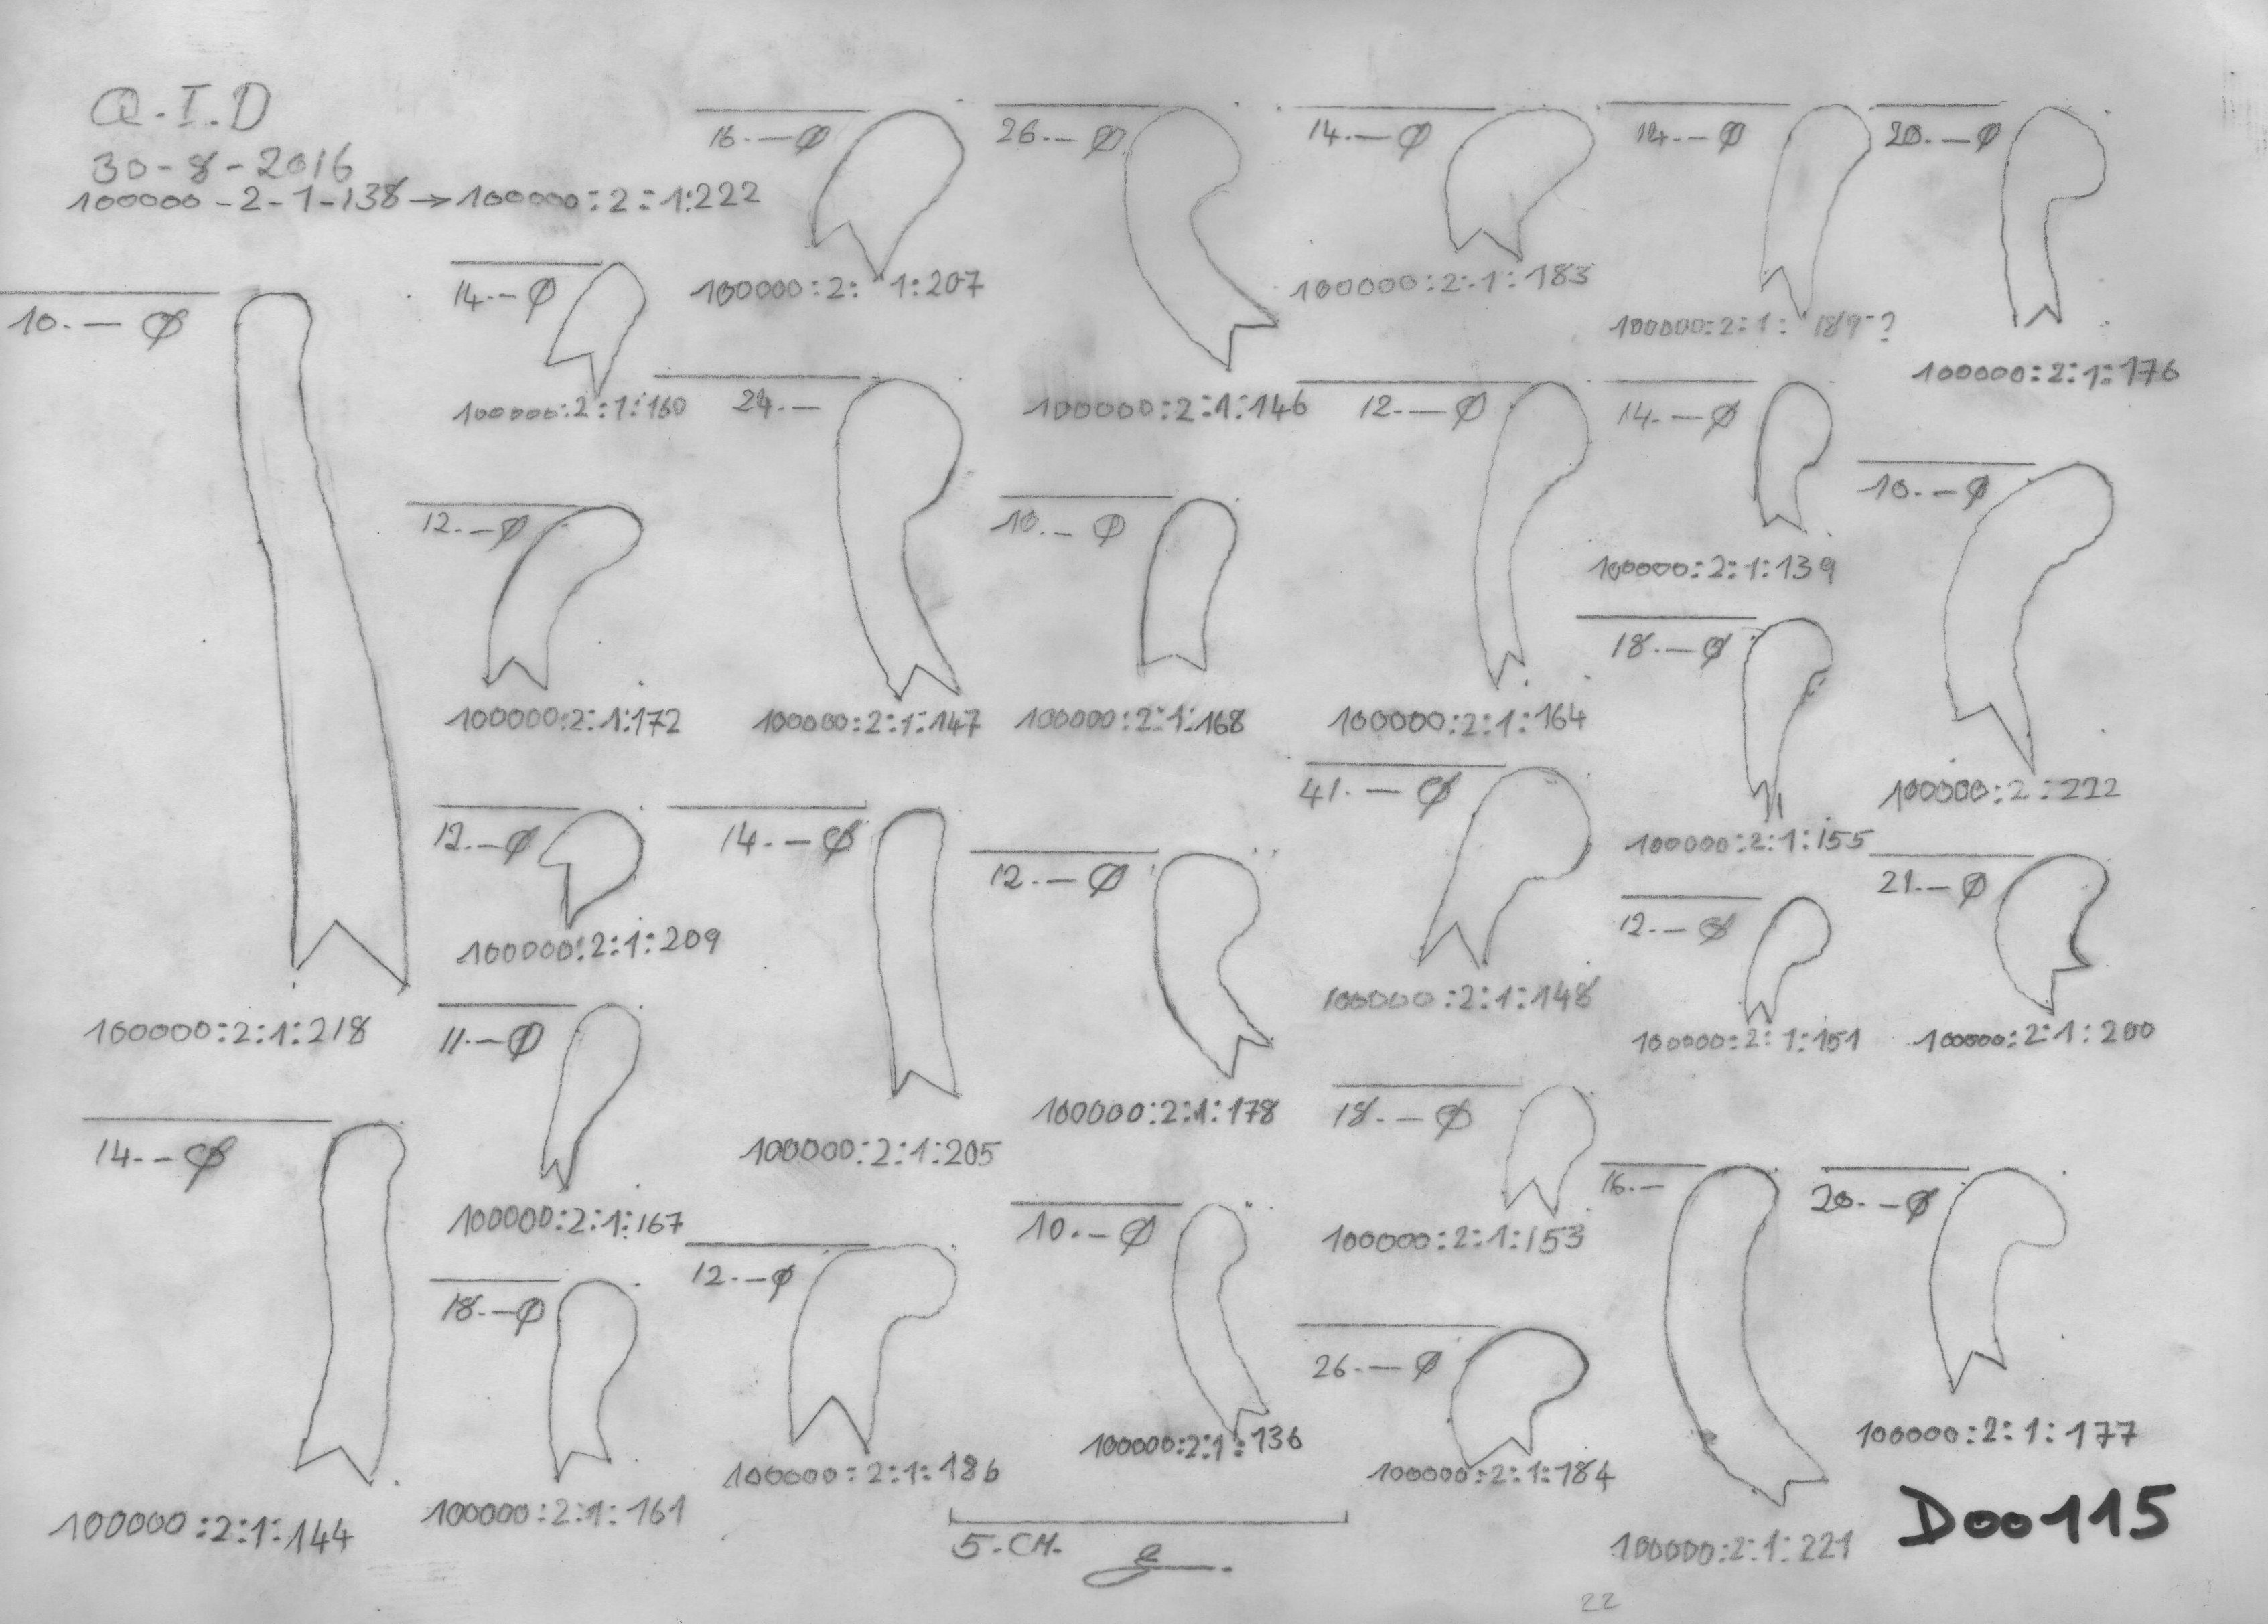 Q.I.D
30-8-2016
100000-2-1-138→100000:2:1:222
16.-Ø
100000:2:1:207
26.-Ø
100000:2:1:146
14.-Ø
100000:2:1:183
14.-Ø
100000:2:1:189?
20.-Ø
100000:2:1:176
10.-Ø
100000:2:1:218
14.-Ø
100000:2:1:160
24.-
100000:2:1:147
12.-Ø
100000:2:1:164
14.-Ø
100000:2:1:139
10.-Ø
100000:2:222
12.-Ø
100000:2:1:172
10.-Ø
100000:2:1:168
18.-Ø
100000:2:1:155
12.-Ø
100000:2:1:209
14.-Ø
100000:2:1:205
12.-Ø
100000:2:1:178
41.-Ø
100000:2:1:148
12.-Ø
100000:2:1:151
21.-Ø
100000:2:1:200
11.-Ø
100000:2:1:167
14.-Ø
100000:2:1:144
18.-Ø
100000:2:1:153
18.-Ø
100000:2:1:161
12.-Ø
100000:2:1:186
10.-Ø
100000:2:1:136
26.-Ø
100000:2:1:184
16.-
100000:2:1:221
20.-Ø
100000:2:1:177
5.CM.
D00115
22